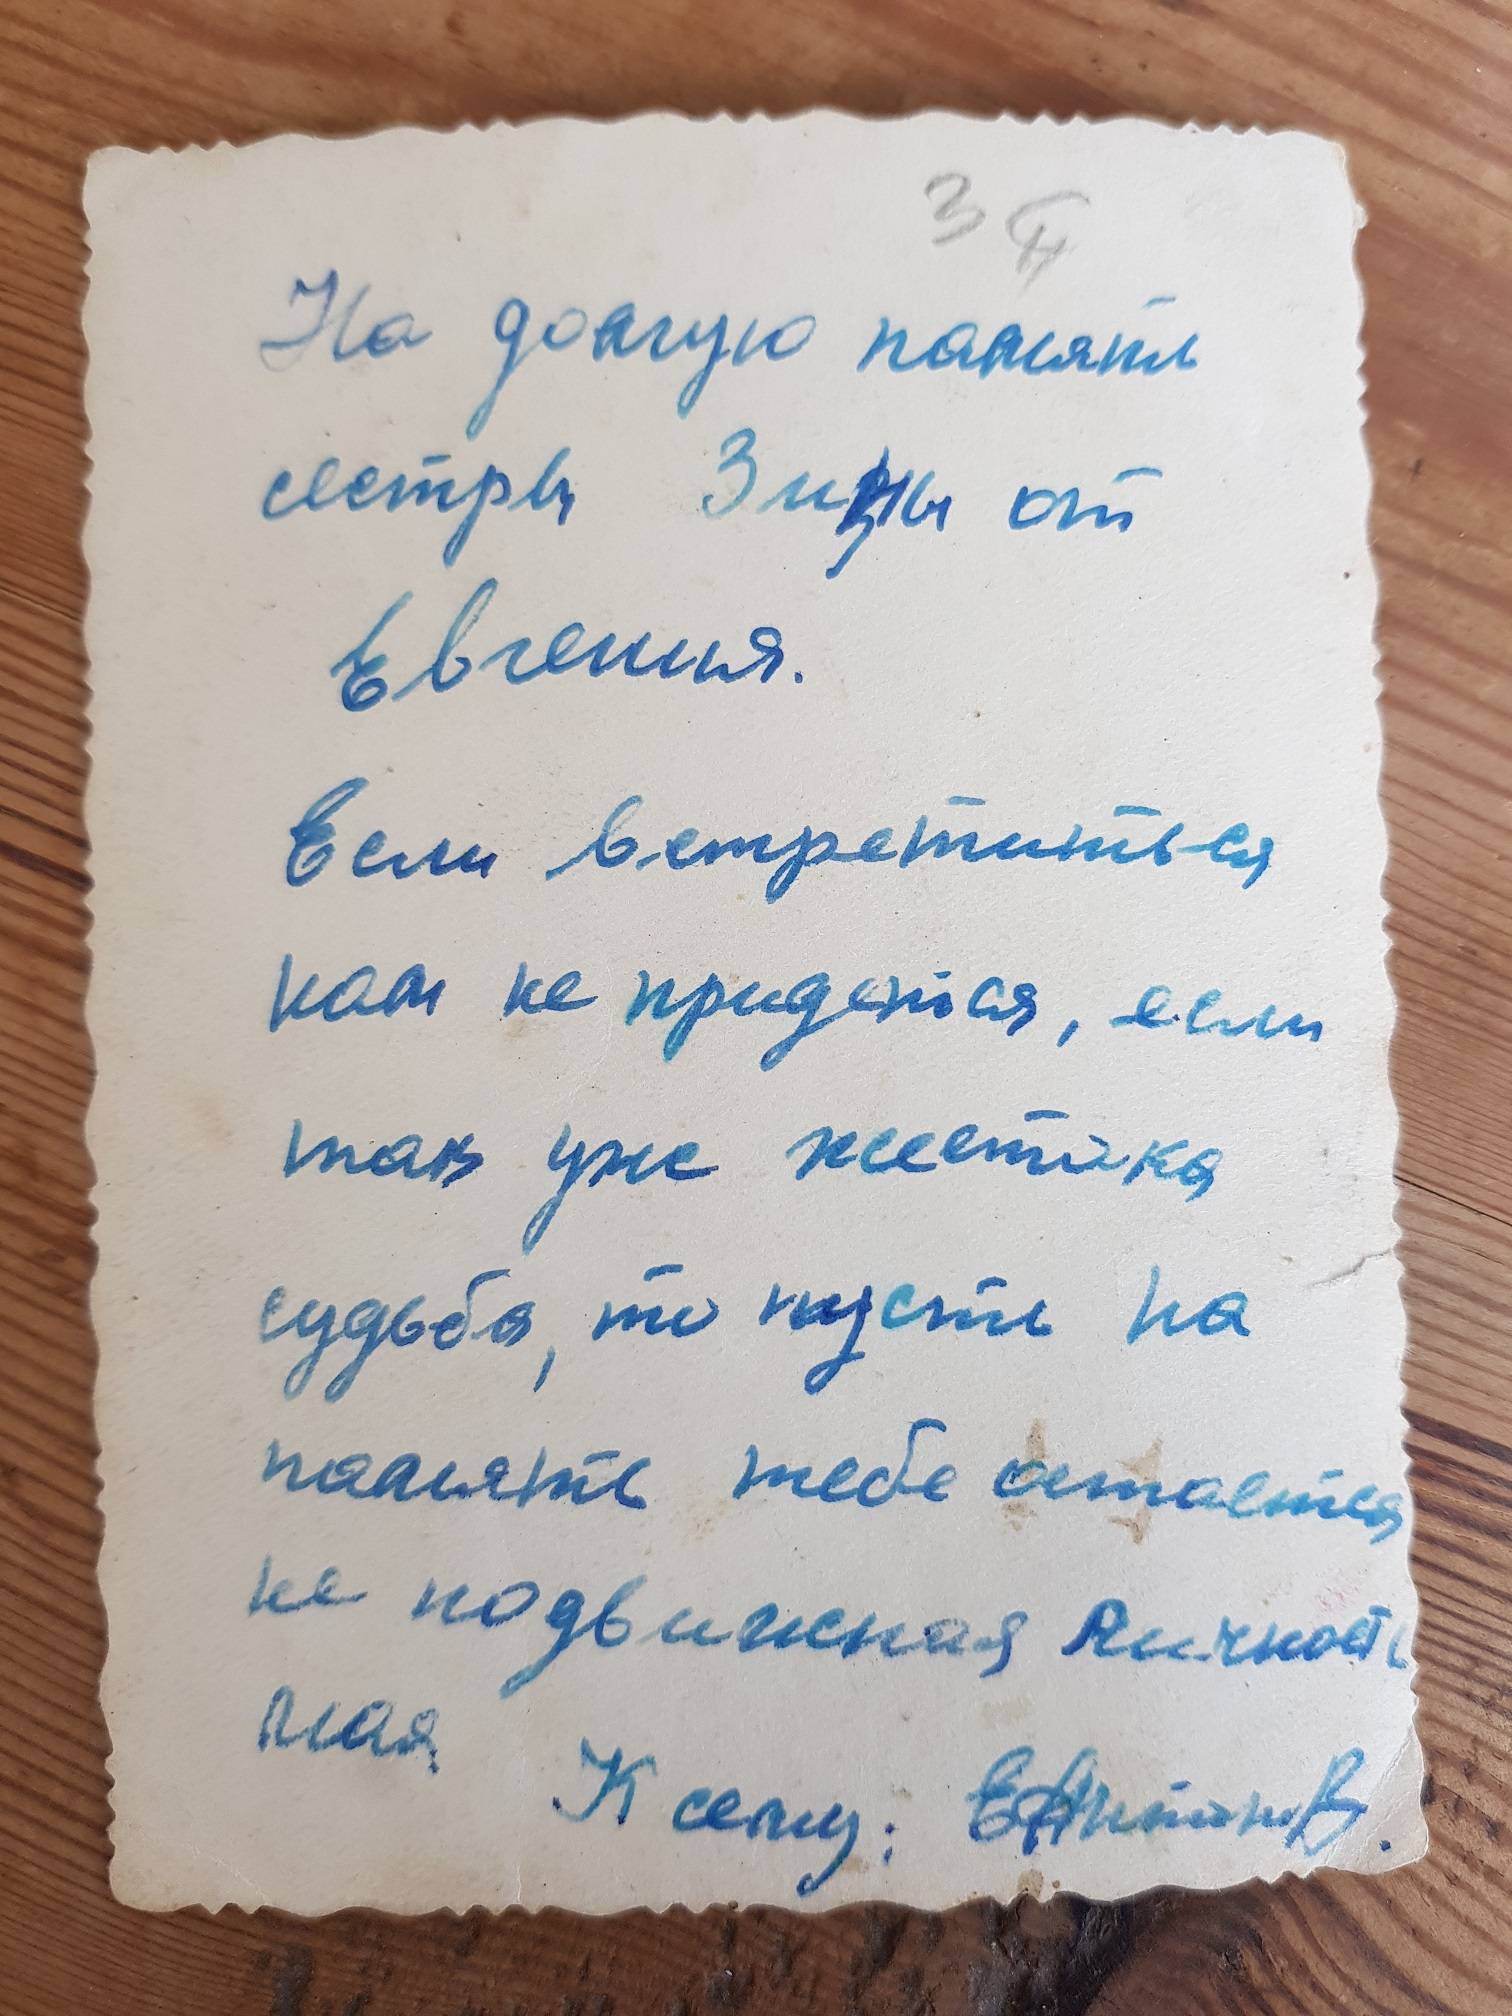 3 II
На долгую память
сестры Зины от
Евгения.
Если встретиться
нам не придется, если
так уже жестока
судьба, то пусть на
память тебе остается
не подвижная личность
моя.
К сему: ЕАнтонов.